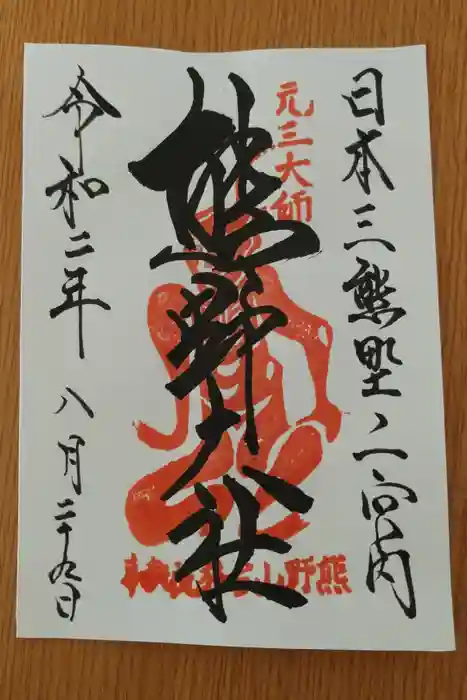 日本三熊野ノ一宮内
元三大師
熊野大社
令和二年
八月二十九日